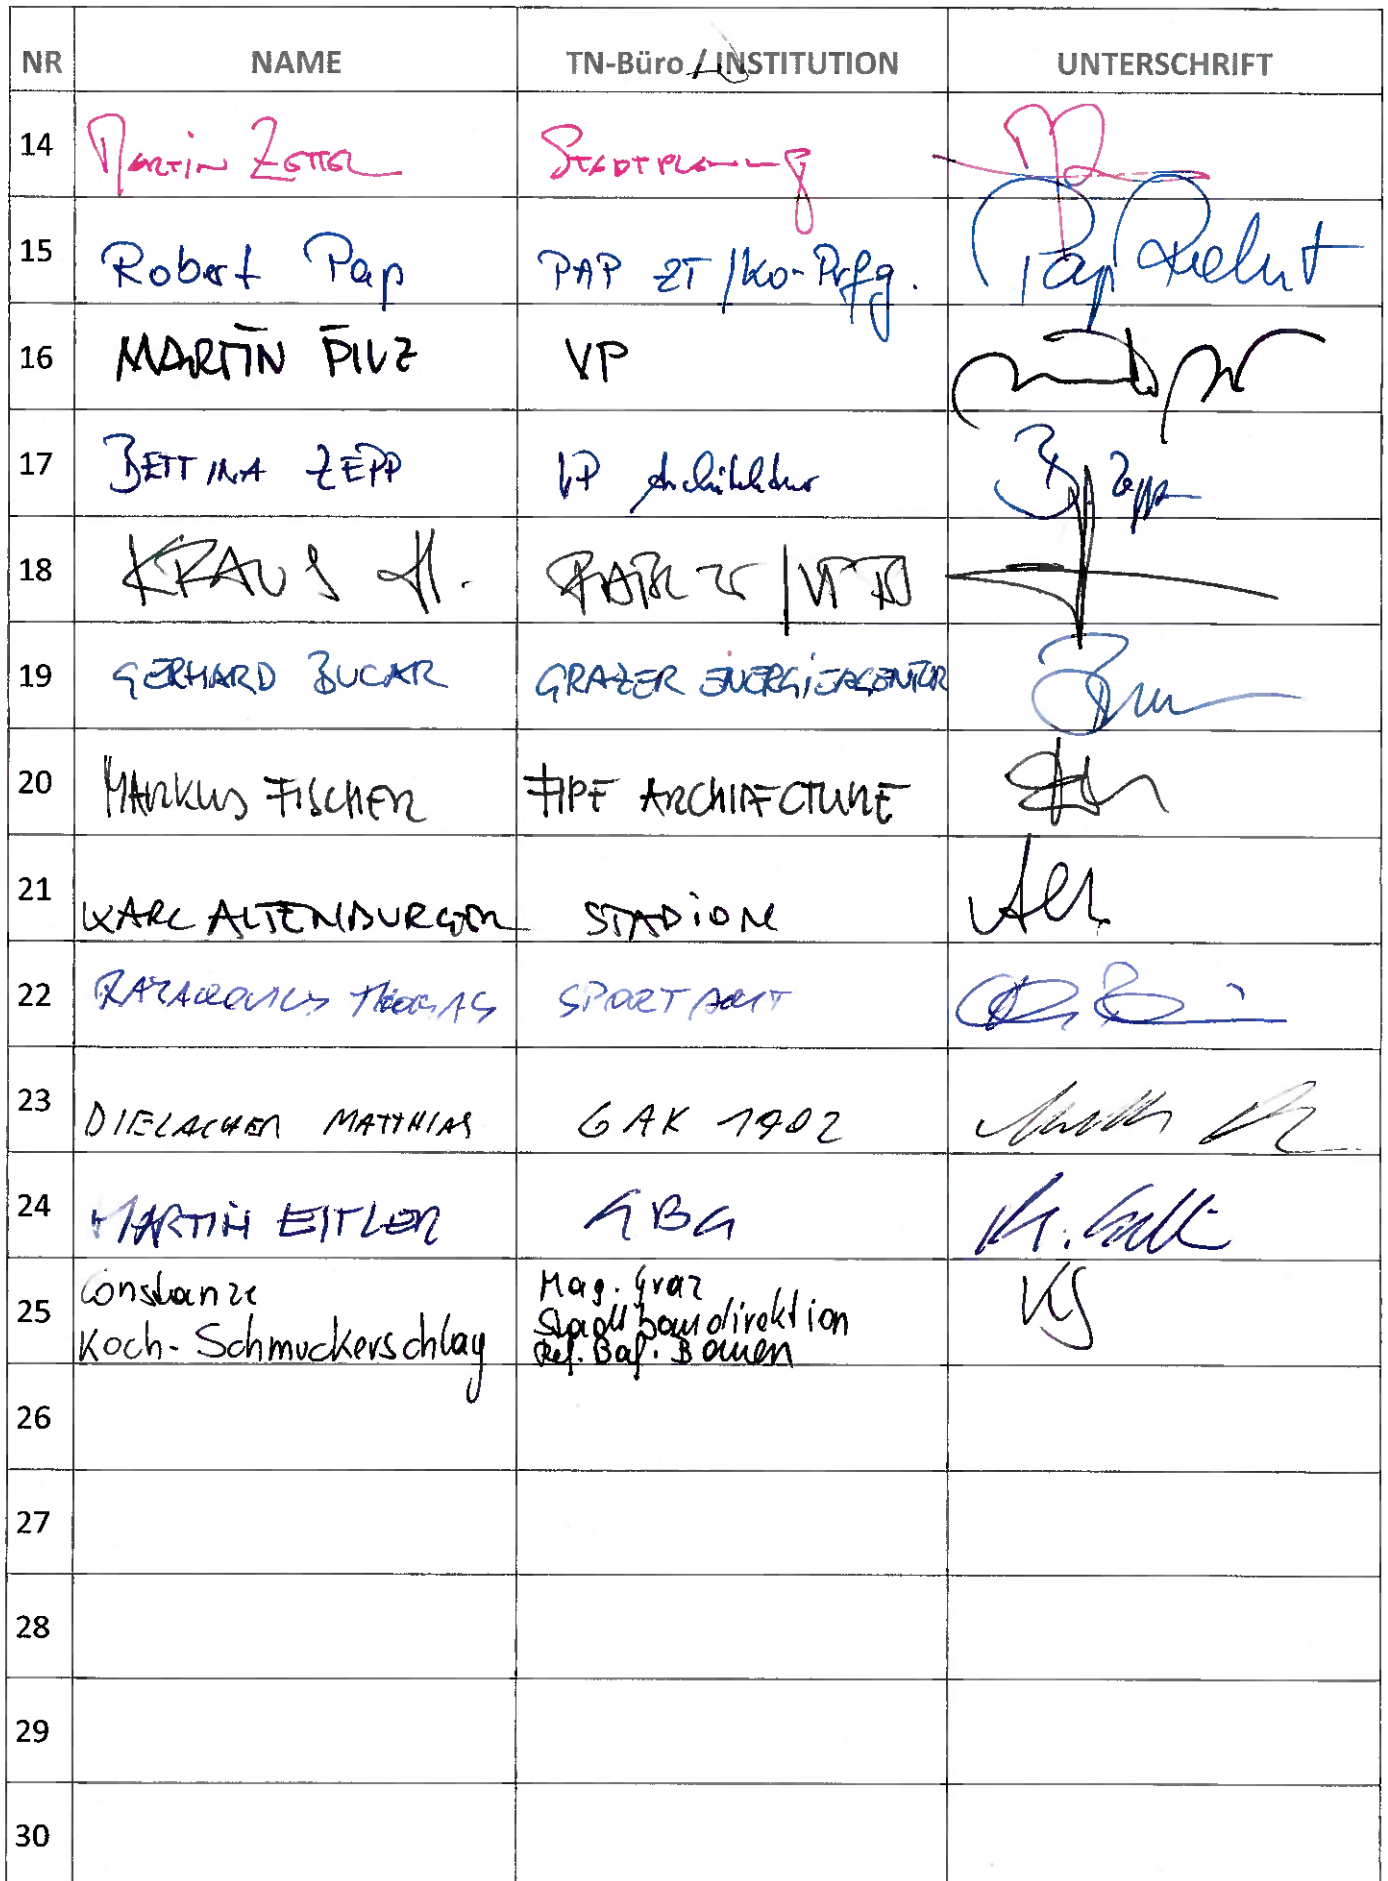 NR NAME TN-Büro / INSTITUTION UNTERSCHRIFT
14 Martin Zettel Stadtplanung
15 Robert Pap PAP ZT / Ko-Prfg. Pap Robert
16 MARTIN PILZ VP
17 BETTINA ZEPP VP Architektur B Zepp
18 KRAUS H.
19 GERHARD BUCAR GRAZER ENERGIEAGENTUR
20 MARKUS FISCHER ARCHITECTURE
21 KARL ALTENBURGER STADION
22 THOMAS SPORTAMT
23 DIELACHER MATTHIAS GAK 1902
24 MARTIN EITLER GBG
25 Constanze
Koch-Schmuckerschlag
Mag. Graz
Stadtbaudirektion
Ref. Baf. Bauen
KS
26
27
28
29
30